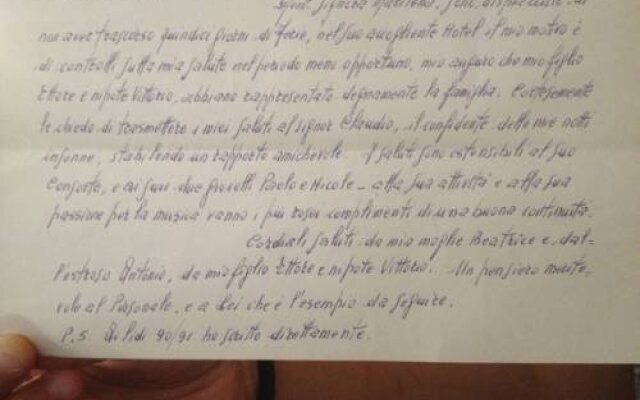 Signora Marilena, sono dispiaciuto di
non aver trascorso quindici giorni di ferie, nel suo accogliente Hotel il mio motivo è
di controlli sulla mia salute nel periodo meno opportuno, mio auguro che mio figlio
Ettore e nipote Vittorio, abbiano rappresentato degnamente la famiglia. Cortesemente
le chiedo di trasmettere i miei saluti al signor Claudio, il confidente delle mie notti
insonne, stabilendo un rapporto amichevole. I saluti sono ostensibili al suo
Consorte, e ai suoi due gioielli Paolo e Nicole - alla sua attività e alla sua
passione per la musica vanno i più rosei complimenti di una buona continuità.
Cordiali saluti da mia moglie Beatrice e, dal-
l'estroso Antonio, da mio figlio Ettore e nipote Vittorio. Un pensiero merite-
vole al Personale, e a Lei che è l'esempio da seguire.
P.S. 90/91 ho scritto direttamente.